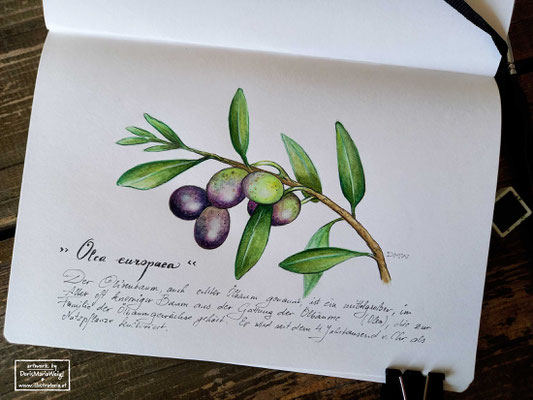 „ Olea europaea “
Der Olivenbaum, auch echter Ölbaum genannt, ist ein mittelgroßer, im
Alter oft knorriger Baum aus der Gattung der Ölbäume (Olea), die zur
Familie der Ölbaumgewächse gehört. Er wird seit dem 4. Jahrtausend v. Chr. als
Nutzpflanze kultiviert.
artwork by
DorisMariaWeigl
www.illustrabela.at